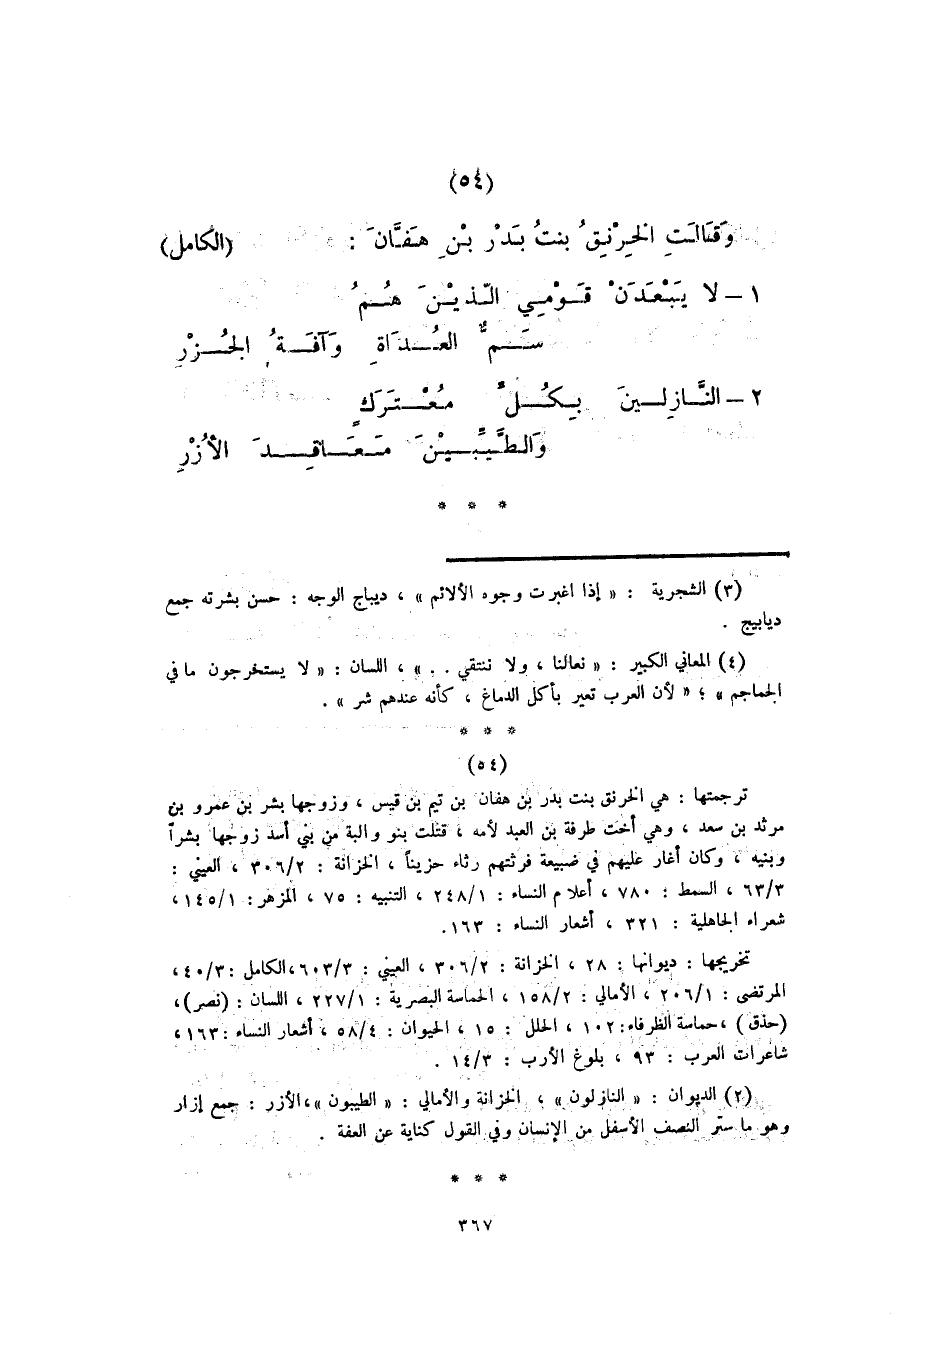 (٥٤)
وَقَالَتِ الخِرْنِقُ بنتُ بَدْرِ بْنِ هَفَّانَ : (الكامل)
١ – لا يَبْعَدَنْ قَوْمِي الّذيْنَ هُمُ
سَمُّ العُدَاةِ وَآفَةُ الجُزْرِ
٢ – النَّازِلِينَ بِكُلِّ مُعْتَرَكٍ
وَالطَّيِّبِيْنَ مَعَاقِدَ الأُزْرِ
* * *
(٣) الشجرية : « إذا اغبرت وجوه الألائم » ، ديباج الوجه : حسن بشرته جمع
ديابيج .
(٤) المعاني الكبير : « نعالنا ، ولا ننتقي . . » ، اللسان : « لا يستخرجون ما في
الجماجم » ؛ « لأن العرب تعير بأكل الدماغ ، كأنه عندهم شر » .
* * *
(٥٤)
ترجمتها : هي الخرنق بنت بدر بن هفان بن تيم بن قيس ، وزوجها بشر بن عمرو بن
مرثد بن سعد ، وهي أخت طرفة بن العبد لأمه ، قتلت بنو والبة من بني أسد زوجها بشراً
وبنيه ، وكان أغار عليهم في ضبيعة فرثتهم رثاء حزيناً ، الخزانة : ٣٠٦/٢ ، العيني :
٦٣/٣ ، السمط : ٧٨٠ ، أعلام النساء : ٢٤٨/١ ، التنبيه : ٧٥ ، المزهر : ١٤٥/١ ،
شعراء الجاهلية : ٣٢١ ، أشعار النساء : ١٦٣ .
تخريجها : ديوانها : ٢٨ ، الخزانة : ٣٠٦/٢ ، العيني : ٦٠٣/٣ ، الكامل : ٤٠/٣ ،
المرتضى : ٢٠٦/١ ، الأمالي : ١٥٨/٢ ، الحماسة البصرية : ٢٢٧/١ ، اللسان : (نصر) ،
(حذق) ، حماسة الظرفاء : ١٠٢ ، الحلل : ١٥ ، الحيوان : ٥٨/٤ ، أشعار النساء : ١٦٣ ،
شاعرات العرب : ٩٣ ، بلوغ الأرب : ١٤/٣ .
(٢) الديوان : « النازلون » ، الخزانة والأمالي : « الطيبون » ، الأزر : جمع إزار
وهو ما ستر النصف الأسفل من الإنسان وفي القول كناية عن العفة .
* * *
٣٦٧